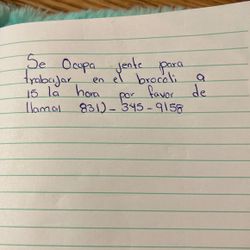 Se Ocupa jente para
trabajar en el brocoli a
15 la hora por favor de
llamar 831)-345-9158